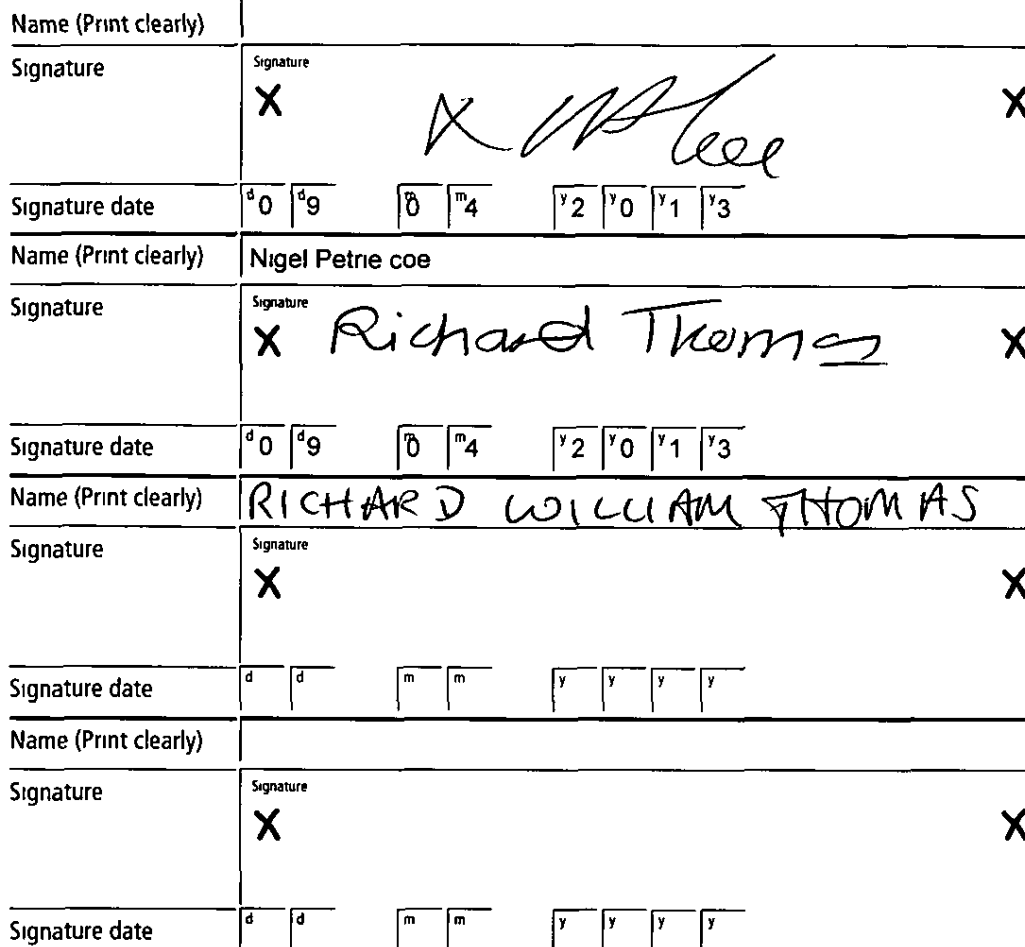 Name (Print clearly)
Signature
Signature
X X
Signature date d0 d9 m0 m4 y2 y0 y1 y3
Name (Print clearly) Nigel Petrie coe
Signature
Signature
X Richard Thomas X
Signature date d0 d9 m0 m4 y2 y0 y1 y3
Name (Print clearly) RICHARD WILLIAM THOMAS
Signature
Signature
X X
Signature date d d m m y y y y
Name (Print clearly)
Signature
Signature
X X
Signature date d d m m y y y y